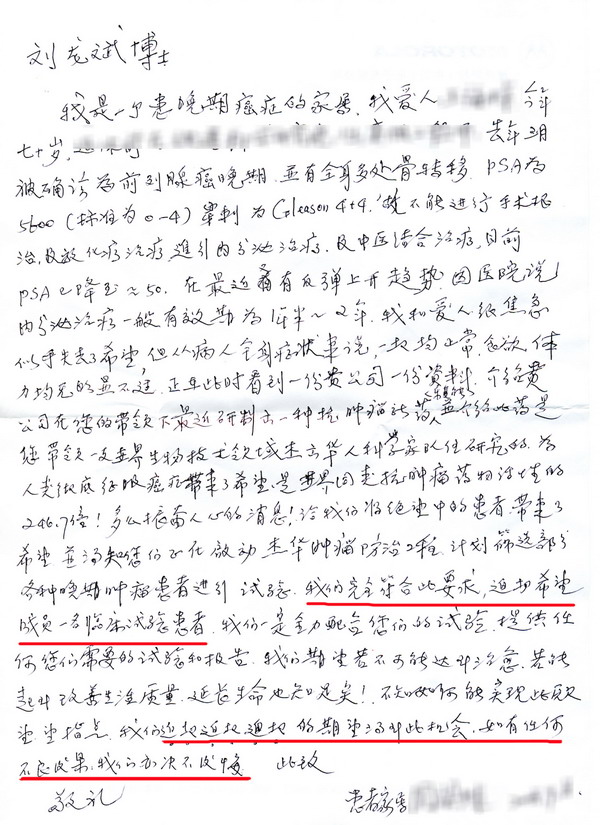 刘龙斌博士
我是一个患晚期癌症的家属,我爱人 今年
七十岁, 去年三月
被确诊为前列腺癌晚期,并有全身多处骨转移,PSA为
5600(标准为0-4)穿刺为Gleason4+4,*不能进行手术根
治,及放化疗治疗,进行内分泌治疗,及中医结合治疗,目前
PSA已降至≈50,在最近有反弹上升趋势,因医院说
内分泌治疗一般有效期为1年半~2年,我和爱人很焦急
似乎失去了希望,但从病人全身症状来说,一切均正常,食欲、体
力均无明显不适,正在此时看到一份贵公司一份资料,介绍贵
公司在您的带领下最近研制出一种抗肿瘤新药,并介绍此药是
您带领一支世界生物技术领域杰出华人科学家队伍研究的,为
人类彻底征服癌症带来了希望,是世界同类抗肿瘤药物活性的
246.7倍!多么振奋人心的消息!给我们将绝望中的患者带来了
希望,并得知您们正在启动杰华肿瘤防治工程,计划筛选部分
各种晚期肿瘤患者进行试验,我们完全符合此要求,迫切希望
成员一名临床试验患者,我们一定全力配合您们的试验,提供任
何您们需要的试验和报告,我们期望若不可能达到治愈,若能
起到改善生活质量,延长生命也知足矣!不知如何能实现此愿
望,望指点,我们迫切迫切迫切的期望得到此机会,如有任何
不良后果,我们亦决不后悔 此致
敬礼 患者家属